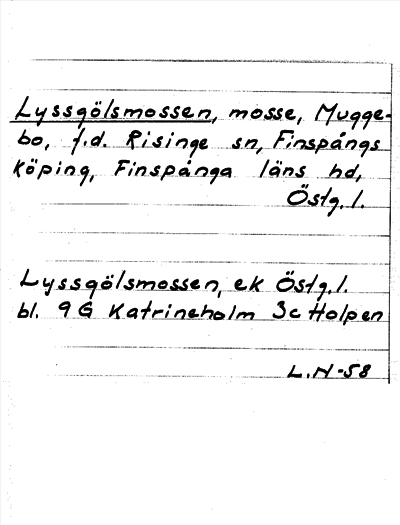 Lyssgölsmossen, mosse, Mugge-
bo, f.d. Risinge sn, Finspångs
köping, Finspånga läns hd,
Östg.l.
Lyssgölsmossen, ek Östg.l.
bl. 9G Katrineholm 3c Holpen
L.N-58